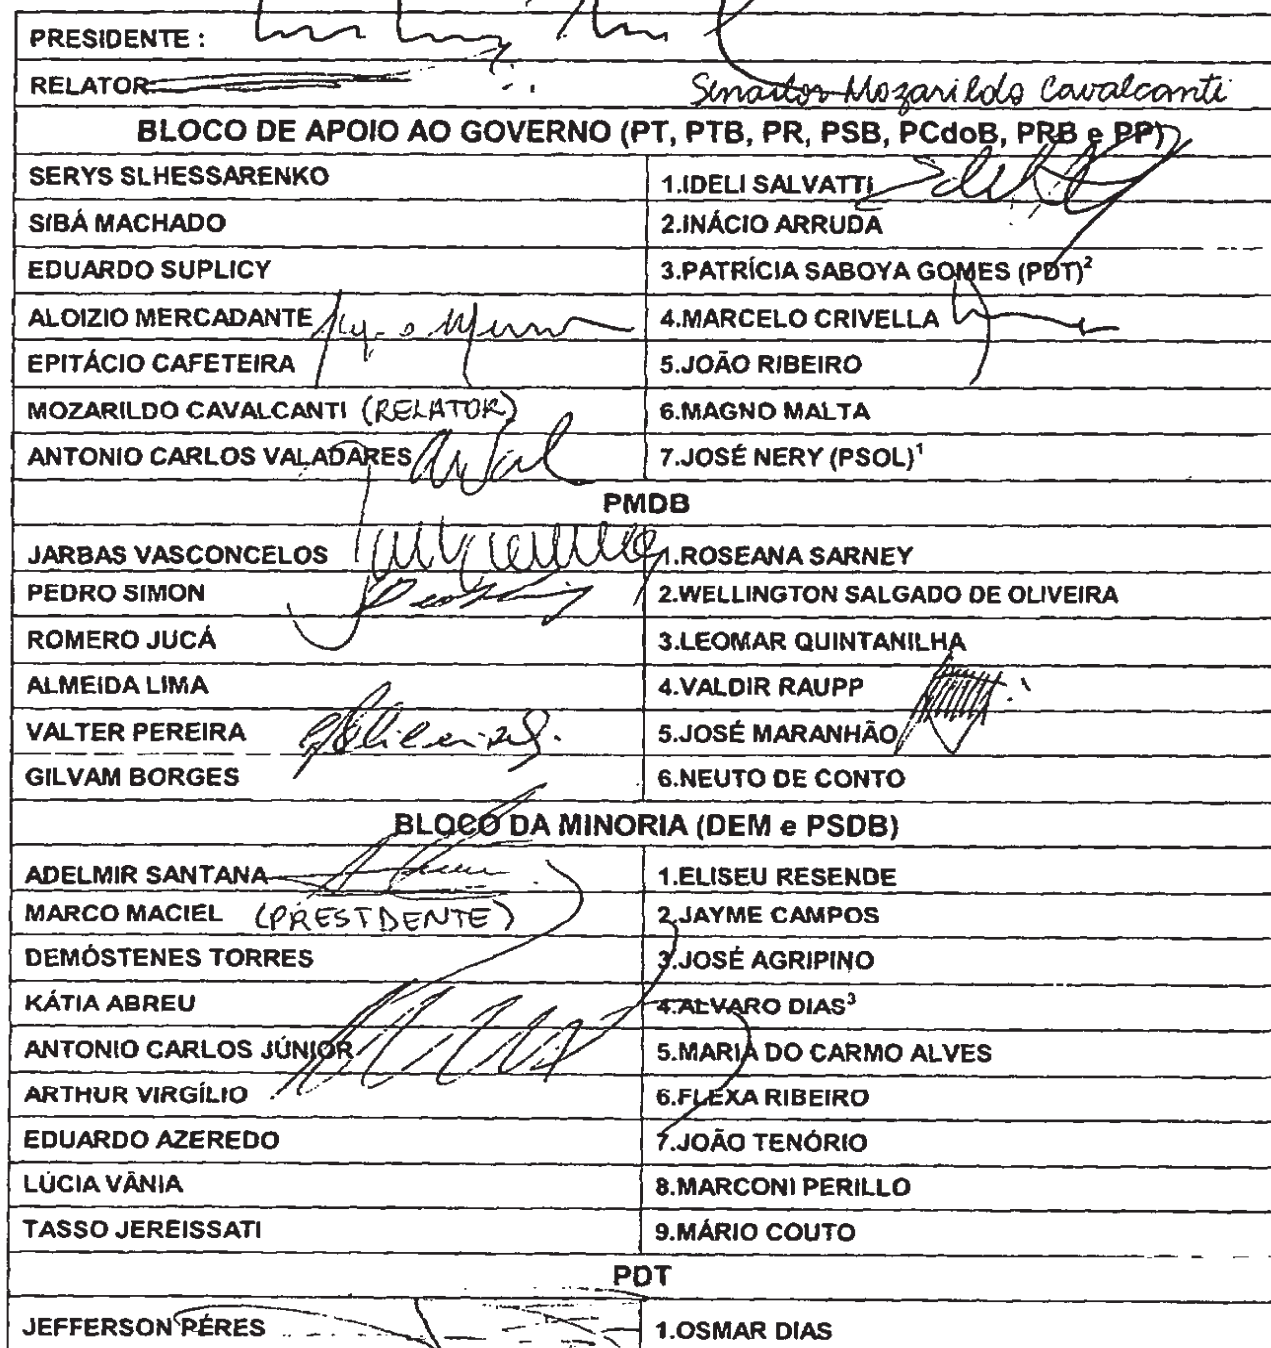 PRESIDENTE :
RELATOR: Senador Mozarildo Cavalcanti
BLOCO DE APOIO AO GOVERNO (PT, PTB, PR, PSB, PCdoB, PRB e PP)
SERYS SLHESSARENKO 1.IDELI SALVATTI
SIBÁ MACHADO 2.INÁCIO ARRUDA
EDUARDO SUPLICY 3.PATRÍCIA SABOYA GOMES (PDT)²
ALOIZIO MERCADANTE 4.MARCELO CRIVELLA
EPITÁCIO CAFETEIRA 5.JOÃO RIBEIRO
MOZARILDO CAVALCANTI (RELATOR) 6.MAGNO MALTA
ANTONIO CARLOS VALADARES 7.JOSÉ NERY (PSOL)¹
PMDB
JARBAS VASCONCELOS 1.ROSEANA SARNEY
PEDRO SIMON 2.WELLINGTON SALGADO DE OLIVEIRA
ROMERO JUCÁ 3.LEOMAR QUINTANILHA
ALMEIDA LIMA 4.VALDIR RAUPP
VALTER PEREIRA 5.JOSÉ MARANHÃO
GILVAM BORGES 6.NEUTO DE CONTO
BLOCO DA MINORIA (DEM e PSDB)
ADELMIR SANTANA 1.ELISEU RESENDE
MARCO MACIEL (PRESIDENTE) 2.JAYME CAMPOS
DEMÓSTENES TORRES 3.JOSÉ AGRIPINO
KÁTIA ABREU 4.ALVARO DIAS³
ANTONIO CARLOS JÚNIOR 5.MARIA DO CARMO ALVES
ARTHUR VIRGÍLIO 6.FLEXA RIBEIRO
EDUARDO AZEREDO 7.JOÃO TENÓRIO
LÚCIA VÂNIA 8.MARCONI PERILLO
TASSO JEREISSATI 9.MÁRIO COUTO
PDT
JEFFERSON PÉRES 1.OSMAR DIAS